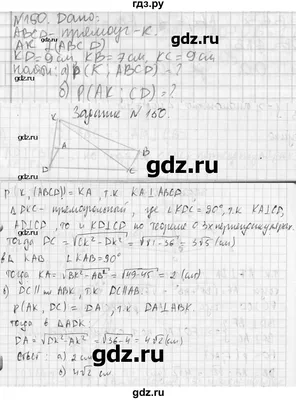 №150. Дано:
ABCD - прямоуг-к.
AK ⊥(ABCD)
KD=6см, KB=7см, KC=9см
Найти: а) ρ(K; ABCD)-?
б) ρ(AK; CD)=?
gdz.ru
Задание №150.
K
A
B
D
gdz.ru
ρ(K, (ABCD))= KA, т.к. KA⊥ABCD.
Δ DKC- прямоугольный, где ∠KDC=90°, т.к. KA⊥CD,
AD⊥CD, то и KD⊥CD по теореме о 3х перпендикулярах.
Тогда DC = √CK²-DK² = √81-36 = 3√5 (см)
в Δ KAB ∠KAB=90°
тогда KA= √BK²-AB² = √49-45 = 2 (см)
б) DC∥пл ABK, т.к. DC∥AB.
ρ(AK, DC) = DA, т.к. DA⊥ABK.
тогда в ΔADK:
DA = √DK²-AK² = √36-4 = 4√2 (см)
Ответ: а) 2 см
б) 4√2 см.
gdz.ru